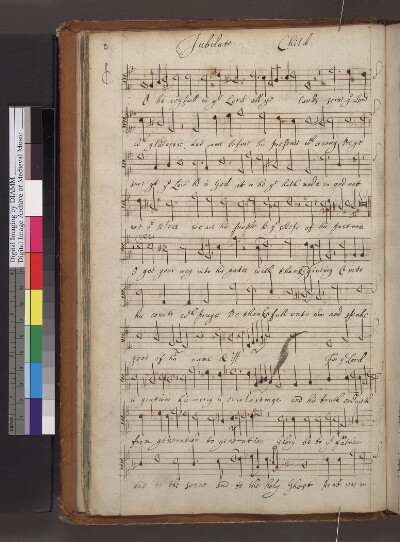 Jubilate Child.
O be joyfull in ye Lord all ye lands serve ye Lord
wth gladness, and come before his presence wth a song Be ye
sure yt ye Lord he is God it is he yt hath made us and not
we are his people & ye sheep of his pasture
O goe your way into his gates with thanksgiving & into
his courts wth prayse Be thankfull unto him and speak
good of his name for ye Lord
is gratious his mercy is everlasting and his truth
from generation to generation Glory be to ye father
and to the sonne and to the Holy Ghost
Digital Imaging by DIAMM
Digital Image Archive of Medieval Music